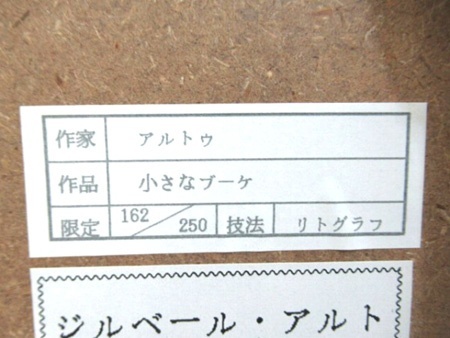 作家 アルトゥ
作品 小さなブーケ
限定 162/250 技法 リトグラフ
ジルベール・アルト